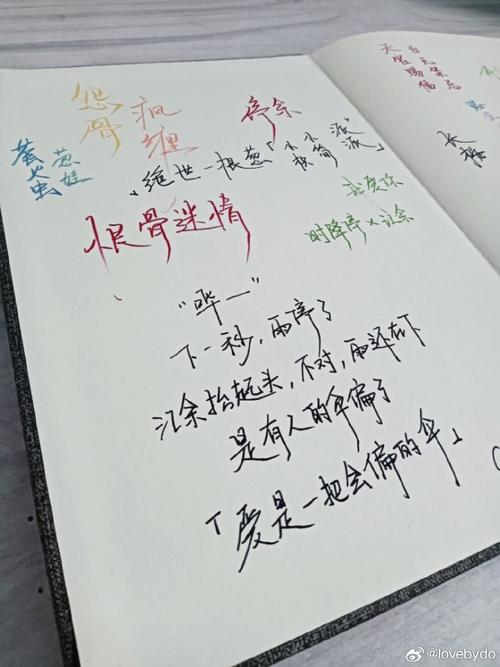 怨骨
疯狸
停余
萤火虫
葱娃
绝世一根葱「木木
极简
派派
我爱你
恨骨迷情
时降停 × 江余
“哗—”
下一秒，雨停了
江余抬起头，不对，雨还在下
是有人的伞偏了
「爱是一把会偏的伞」
百无禁忌
天官赐福
@lovebydo